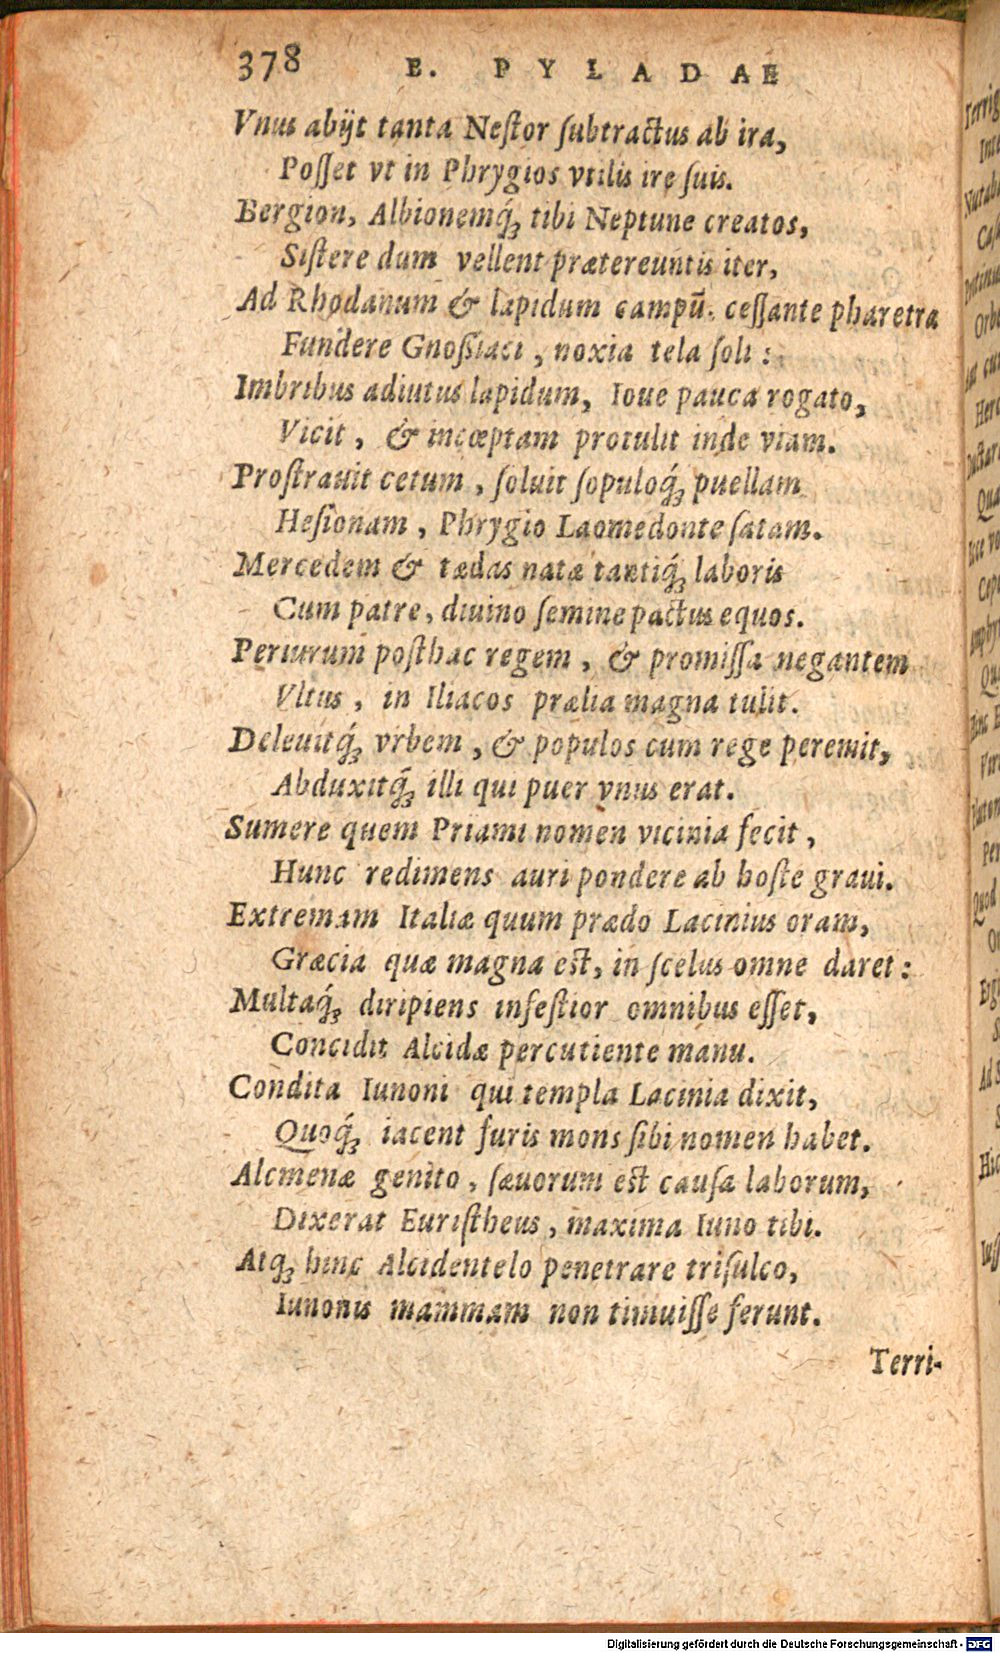 378 E. PYLADAE
Vnus abijt tanta Neſtor ſubtractus ab ira,
Poſſet vt in Phrygios vtilis ire ſuis.
Bergion, Albionemq́ꝫ tibi Neptune creatos,
Siſtere dum vellent prætereuntis iter,
Ad Rhodanum & lapidum campū, ceſſante pharetra
Fundere Gnoßiaci, noxia tela ſoli:
Imbribus adiutus lapidum, Ioue pauca rogato,
Vicit, & incœptam protulit inde viam.
Proſtrauit cetum, ſoluit ſopuloq́ꝫ puellam
Heſionam, Phrygio Laomedonte ſatam.
Mercedem & tædas natæ tantiq́ꝫ laboris
Cum patre, diuino ſemine pactus equos.
Periurum poſthac regem, & promiſſa negantem
Vltus, in Iliacos prælia magna tulit.
Deleuitq́ꝫ vrbem, & populos cum rege peremit,
Abduxitq́ꝫ illi qui puer vnus erat.
Sumere quem Priami nomen vicinia fecit,
Hunc redimens auri pondere ab hoſte graui.
Extremam Italiæ quum prædo Lacinius oram,
Græcia quæ magna eſt, in ſcelus omne daret:
Multaq́ꝫ diripiens infeſtior omnibus eſſet,
Concidit Alcidæ percutiente manu.
Condita Iunoni qui templa Lacinia dixit,
Quoq́ꝫ iacent furis mons ſibi nomen habet.
Alcmenæ genito, ſæuorum eſt cauſa laborum,
Dixerat Euriſtheus, maxima Iuno tibi.
Atqꝫ hinc Alcidentelo penetrare triſulco,
Iunonis mammam non timuiſſe ferunt.
Terri-
Digitalisierung gefördert durch die Deutsche Forschungsgemeinschaft - DFG